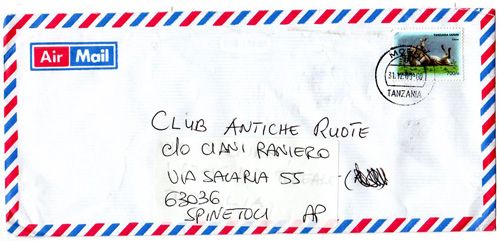 Air Mail
TANZANIA SAFARI
31.12.09
TANZANIA
CLUB ANTICHE RUOTE
c/o CIANI RANIERO
VIA SALARIA 55
63036
SPINETOLI AP.